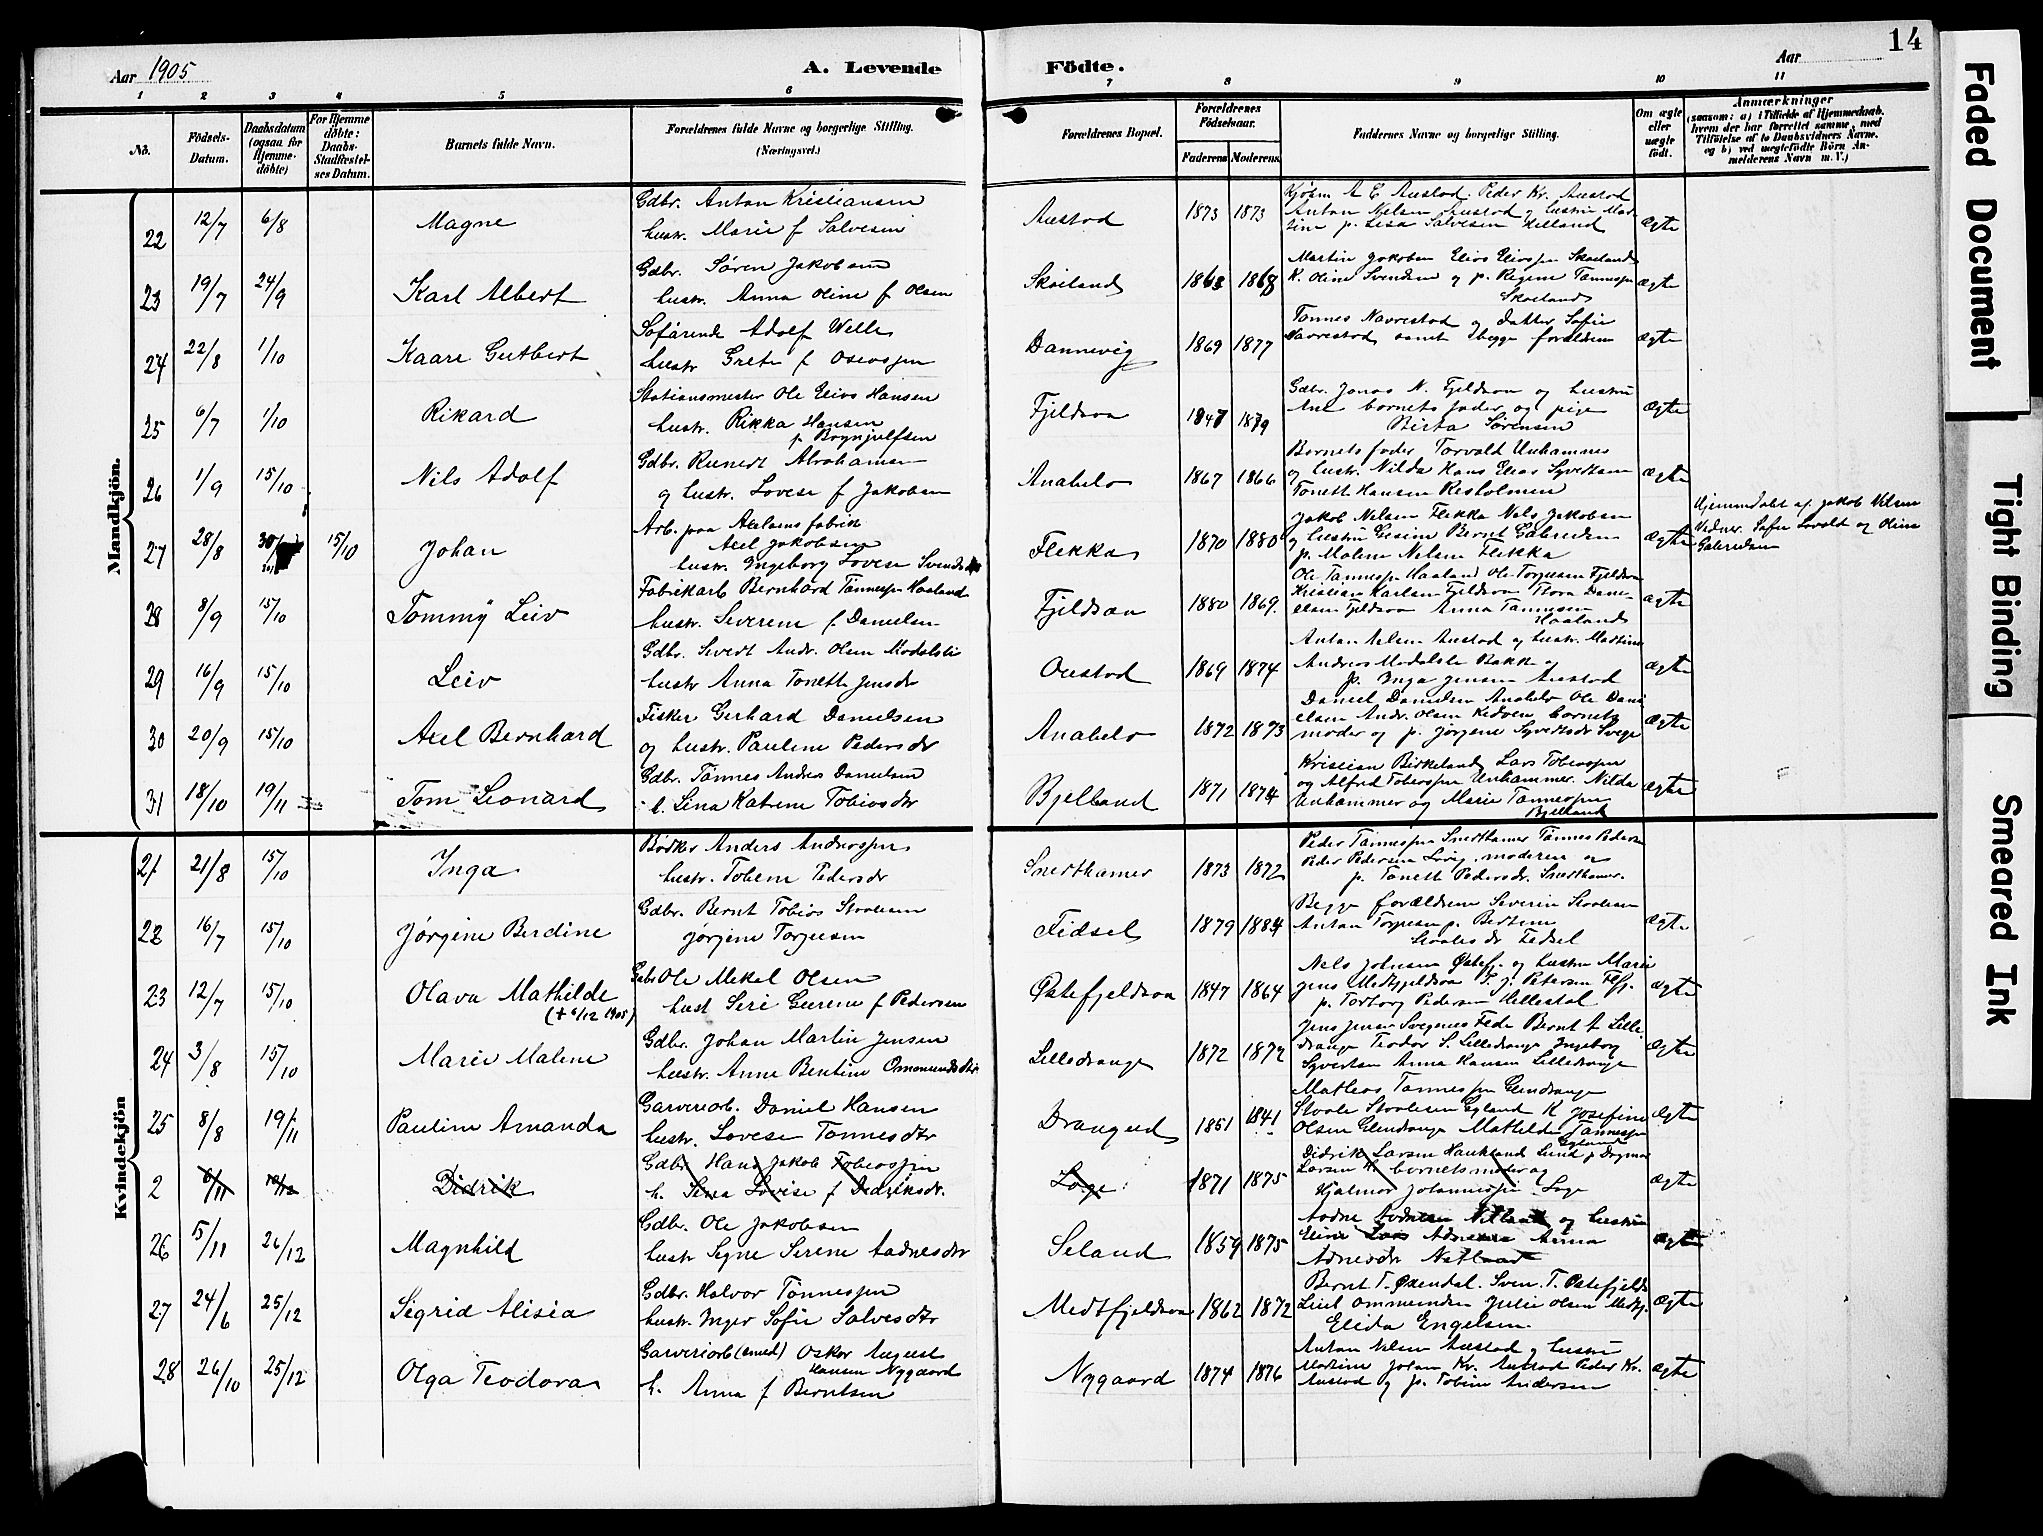 14
Aar 1905
A. Levende Födte.
Aar
1 2 3 4 5 6 7 8 9 10 11
No.
Födsels-Datum.
Daabsdatum (ogsaa for Hjemme-döbte)
For Hjemme döbte: Daabs-Stadfæstel-ses Datum.
Barnets fulde Navn.
Forældrenes fulde Navne og borgerlige Stilling. (Næringsvei.)
Forældrenes Bopæl.
Forældrenes Födselsaar.
Faderens
Moderens
Faddernes Navne og borgerlige Stilling.
Om ægte eller uægte födt.
Anmærkninger
(saasom: a) i Tilfælde af Hjemmedaab, hvem der har forrettet samme, med Tilföielse af to Daabsvidners Navne, og b) ved uægtefödte Börn An-melderens Navn m. V.)
Mandkjön.
22 12/7 6/8 Magne
Gdbr. Anton Kristiansen
hustr. Marie f Salvesen
Austad 1873 1873
Anton Nelsen Austad og hustru
Salvesen Helland
ægte
23 19/7 24/9 Karl Albert
Gdbr. Søren Jakobsen
hustr. Anna Oline f Olsen
Skoiland 1863 1868
K. Oline Svendsen og p. Regine Tønnesen
Skoiland
ægte
24 22/8 1/10 Kaare Gutbert
Søfarende Adolf Welle
hustr Grete f
Dannevig 1869 1877
Tønnes Navrestad og datter Sofie
Navrestad samt begge forældrene
ægte
25 6/7 1/10 Rikard
Stationsmester Ole Elias Hansen
hustr. Rikka Hansen
f Brynjulfsen
Fjeldsaa 1847 1879
Gdbr. Jonas N. Fjeldsaa og hustru
Ane barnets fader og pige
Berta Sørensen
ægte
26 1/9 15/10 Nils Adolf
Gdbr. Reinert Abrahamsen
og hustr. Lovise f Jakobsen
Anabelø 1867 1866
Barnets fader Torvald Unhammer
og hustr. Nilda Hans Elias
Tonette Hansen Resholmen
ægte
27 28/8 15/10 Johan
Arb. paa
Axel Jakobsen
hustr. Ingeborg Lovise
Flekka 1870 1880
Jakob Nelsen Flekka Nels Jakobsen
og hustru Gesine Bernt Gabrielsen
p. Malene Nelsen Flekka
ægte
Hjemmedøbt af Jakob Nelsen
28 8/9 15/10 Tommy Leiv
Fabrikarb Bernhard Tønnesen Haaland
hustr. Severine f Danielsen
Fjeldsaa 1880 1869
Ole Tønnesen Haaland Ole Torjusen Fjeldsaa
Kristian Karlsen Fjeldsaa Tora
Fjeldsaa Anna Tønnesen
Haaland
ægte
29 16/9 15/10 Leiv
Gdbr. Sivert Andr. Olsen
hustr Anna Tonette Jensdtr
Oustad 1869 1874
Anton Nelsen Austad og hustr.
Andreas Bakke og
p. Inga Jensen Austad
ægte
30 20/9 15/10 Axel Bernhard
Fisker Gerhard Danielsen
og hustr. Pauline Pedersdtr
Anabelø 1872 1873
Daniel Danielsen Anabelø Ole Dani
elsen Andr. Olsen barnets
moder og p. Jørgine
ægte
31 18/10 19/11 Tom Leonard
Gdbr. Tønnes Andreas Danielsen
h. Lina Katrine Tobiasdtr
Bjelland 1871 1874
Kristian Birkeland Lars Tobiassen
og Alfred Tobiassen Unhammer. Nilda
Unhammer og Marie Tønnesen
Bjelland
ægte
Kvindekjön
21 21/8 15/10 Inga
Bødker Anders Andreassen
hustr. Tobine Pedersdtr
Snerthamer 1873 1872
Peder Tønnessen Snerthamer Tønnes Pedersen
Peder Pedersen moderen og
p. Tonette Pedersdtr. Snerthamer.
22 16/7 15/10 Jørgine Berdine
Gdbr. Bernt Tobias Staalesen
Jørgine Torjusen
Fidsel 1879 1884
Begge forældrene Severin Staalesen
Anton Torjusen p.
Fedsel
ægte
23 12/7 15/10 Olava Mathilde
(† 6/12 1905)
Gdbr Ole Mekal Olsen
hust Siri Gurine f Pedersen
Østefjeldsaa 1847 1864
Nels Johnsen Østefj. og hustru Marie
Jens Medtfjeldsaa
p. Torborg Pedersen
ægte
24 3/8 15/10 Marie Malene
Gdbr. Johan Martin Jensen
hustr. Anne Bentine Ommundsdtr
Lilledrange 1872 1872
Jens Jensen Fede Bernt A Lille
drange Teodor S. Lilledrange Ingeborg
Syvertsen Anna Hansen Lilledrange
ægte
25 8/8 19/11 Pauline Amanda
Garveriarb. Daniel Hansen
hustr. Lovise Tønnesdtr
Drangeid 1851 1841
Mathias Tønnesen Gundrange
Staale Staalesen Egeland K Josefine
Olsen Mathilde Tønnesen
ægte
2 6/11 10/12 Didrik
Gdbr Hans Jakob Tobiassen
h. Lovise f Didriksdr.
Loge 1871 1875
Didrik Larsen Haukland Lund p Dagmar
Larsen H. barnets moder og
Hjalmar Johannessen Loge
ægte
26 5/11 26/12 Magnhild
Gdbr. Ole Jakobsen
hustr Signe Serine Aadnesdtr
Seland 1859 1875
og hustru
Anna
ægte
27 24/6 25/12 Sigrid Alisia
Gdbr. Halvor Tønnesen
hustr. Inger Sofie Salvesdtr
Medtfjeldsaa 1862 1872
Bernt T. Ødendal. Sven. T. Østefjelds
Ommundsen Julie Olsen Medtfj.
Elida Engelsen.
ægte
28 26/10 25/12 Olga Teodora
Garveriarb (svend) Oskar August
Hansen Nygaard
h. Anna f Berntsen
Nygaard 1874 1876
Anton Nelsen Austad og hustru
Martine Johan Kr. Austad Peder Kr.
Austad og p. Tobine Andersen
ægte
Faded Document
Tight Binding
Smeared Ink